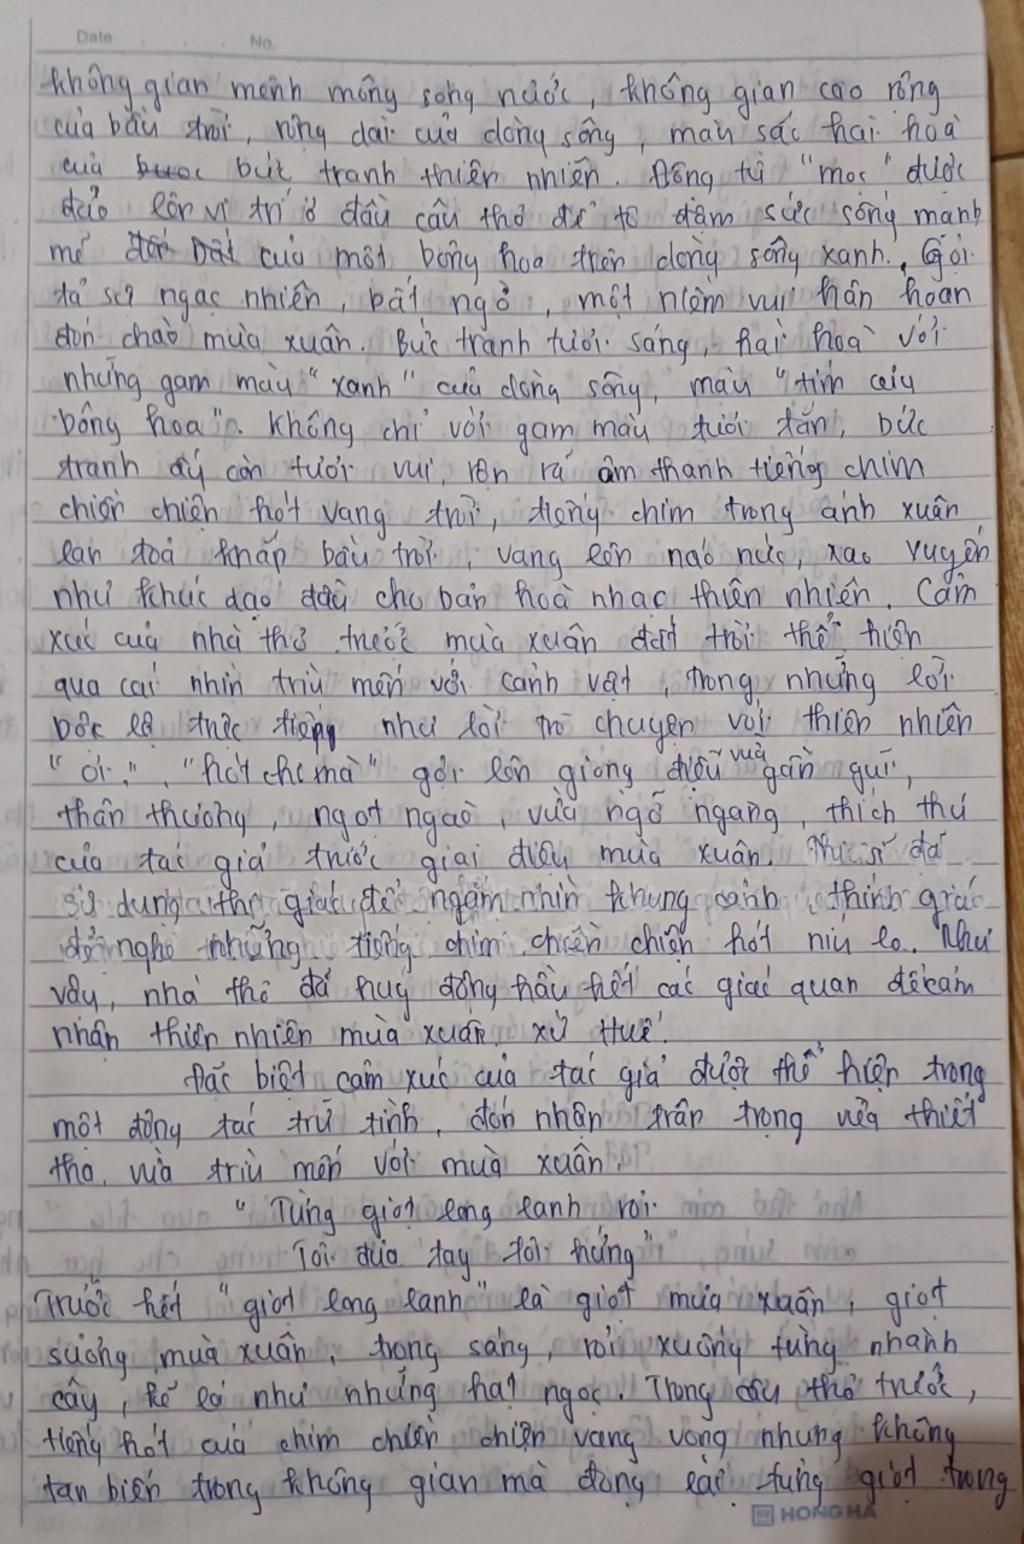 Date No.
không gian mênh mông sông nước, không gian cao rộng
của bầu trời, rộng dài của dòng sông, màu sắc hài hoà
của bức tranh thiên nhiên. Động từ "mọc" được
đảo lên vị trí ở đầu câu thơ để tô đậm sức sống mạnh
mẽ của một bông hoa trên dòng sông xanh. Gợi
tả sự ngạc nhiên, bất ngờ, một niềm vui hân hoan
đón chào mùa xuân. Bức tranh tươi sáng, hài hoà với
những gam màu "xanh" của dòng sông, màu "tím của
bông hoa". Không chỉ với gam màu tươi tắn, bức
tranh ấy còn tươi vui, rộn rã âm thanh tiếng chim
chiền chiện hót vang trời, tiếng chim trong ánh xuân
lan toả khắp bầu trời, vang lên náo nức, xao xuyến
như khúc dạo đầu cho bản hoà nhạc thiên nhiên. Cảm
xúc của nhà thơ trước mùa xuân đất trời thể hiện
qua cái nhìn trìu mến với cảnh vật, trong những lời
bộc lộ trực tiếp như lời trò chuyện với thiên nhiên
"ơi", "hót chi mà" gợi lên giọng điệu vừa gần gũi,
thân thương, ngọt ngào, vừa ngỡ ngàng, thích thú
của tác giả trước giai điệu mùa xuân. Thi sĩ đã
sử dụng thị giác để ngắm nhìn khung cảnh, thính giác
để nghe những tiếng chim chiền chiện hót níu lo. Như
vậy, nhà thơ đã huy động hầu hết các giác quan để cảm
nhận thiên nhiên mùa xuân xứ Huế.
Đặc biệt cảm xúc của tác giả được thể hiện trong
một động tác trữ tình, đón nhận trân trọng vừa thiết
tha, vừa trìu mến với mùa xuân.
"Từng giọt long lanh rơi
Tôi đưa tay tôi hứng"
Trước hết "giọt long lanh" là giọt mưa xuân, giọt
sương mùa xuân, trong sáng, rơi xuống từng nhành
cây, kẽ lá như những hạt ngọc. Trong câu thơ trước,
tiếng hót của chim chiền chiện vang vọng nhưng không
tan biến trong không gian mà đọng lại từng giọt trong
HONG HA